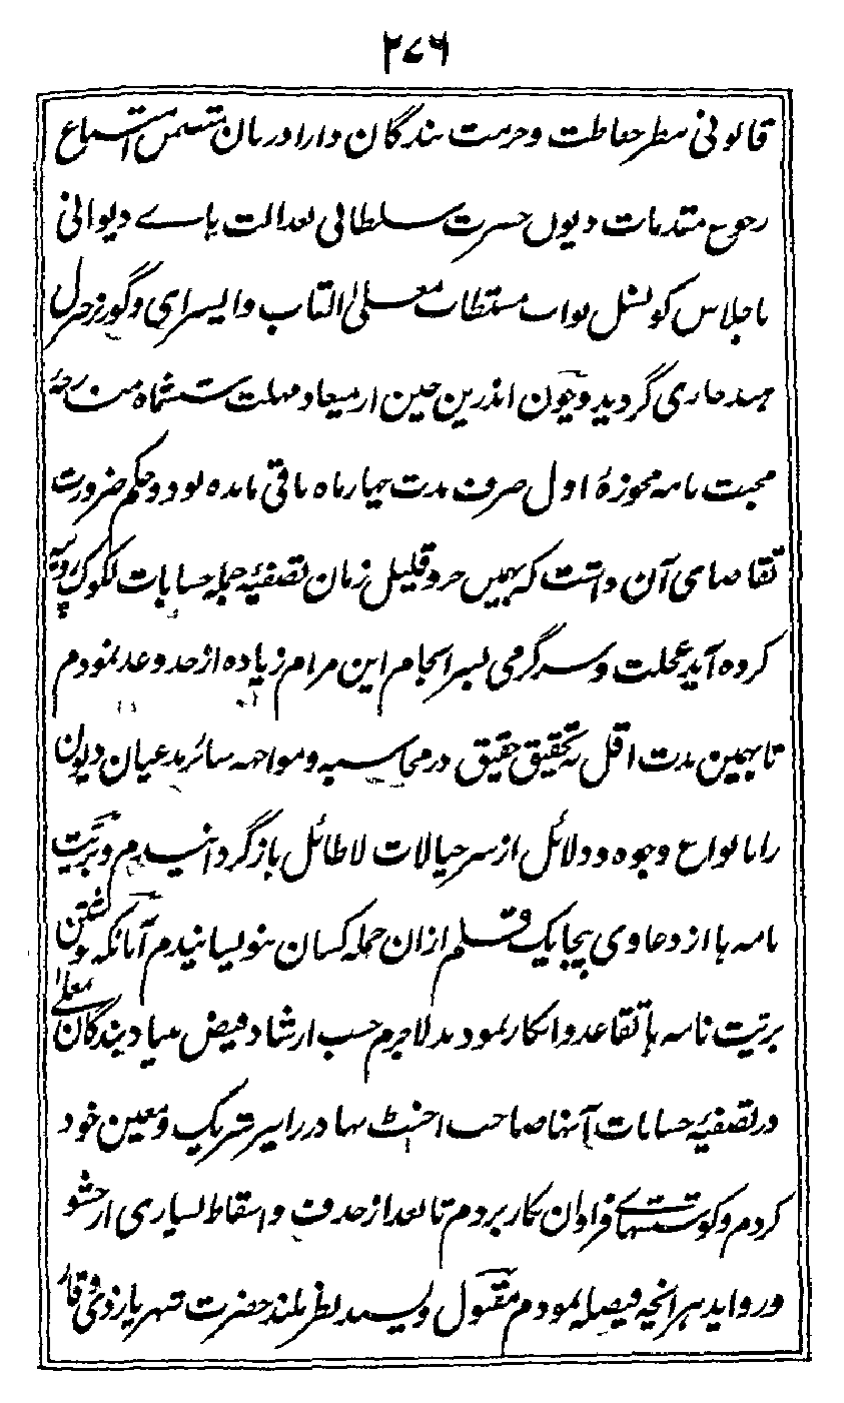 ۲۷۶
قانونی بنظر حفاظت و حرمت بندگان دارا دربان متضمن امتناع
رجوع مقدمات دیون حضرت سلطانی بعدالت ہاے دیوانی
باجلاس کونسل نواب مستطاب معلیٰ القاب وایسرای و گورنر جنرل
ہند جاری گردید و چون اندرین حین از میعاد مہلت ششماہ مندرجۂ
محبت نامہ محوزۂ اول صرف مدت چہار ماہ باقی ماندہ بود و حکم ضرورت
تقاضای آن داشت کہ بہمین جزو قلیل زمان تصفیۂ جملہ حسابات لکوک روپیہ
کردہ آید عجلت و سرگرمی بسرانجام این مرام زیادہ از حد و عد نمودم
تا بہمین مدت اقل بہ تحقیق حقیق در محاسبہ و مواجہہ سائر مدعیان دیون
را بانواع وجوہ و دلائل از سر خیالات لاطائل بازگردانیدم و بریّت
نامہ ہا از دعاوی بیجا یک قلم ازان جملہ کسان نویسانیدم آنانکہ بنوشتن
بریّت نامہ ہا تقاعد و انکار نمودند لاجرم حسب ارشاد فیض بنیاد بندگان معلیٰ
در تصفیۂ حسابات آنہا صاحب اجنٹ بہادر را نیز شریک و معین خود
کردم و کوششہاے فراوان بکار بردم تا بعد از حذف و اسقاط بسیاری از حشو
و زواید ہر انچہ فیصلہ نمودم مقبول و پسند نظر بلند حضرت شہریار ذی وقار